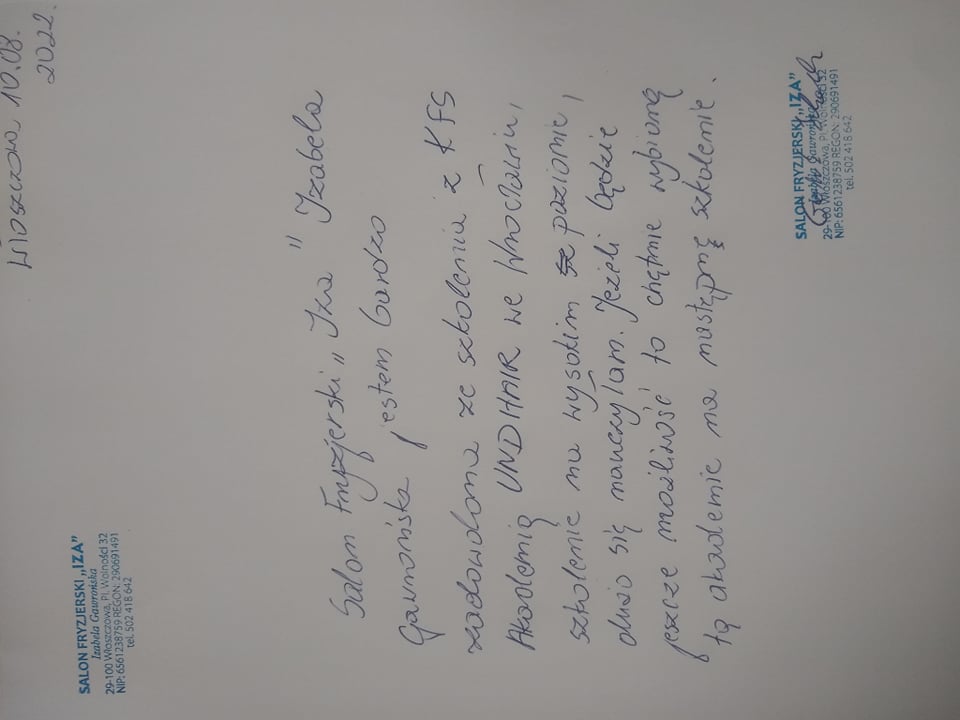 Włoszczowa 10.08.
2022.
SALON FRYZJERSKI „IZA"
Izabela Gawrońska
29-100 Włoszczowa, Pl. Wolności 32
NIP: 6561238759 REGON: 290691491
tel. 502 418 642
Salon Fryzjerski „Iza" Izabela
Gawrońska jestem bardzo
zadowolona ze szkolenia z KFS
Akademią UNDHAIR we Wrocławiu,
szkolenie na wysokim poziomie,
dużo się nauczyłam. Jeżeli będzie
jeszcze możliwość to chętnie wybiorę
tą akademie na następne szkolenie.
SALON FRYZJERSKI „IZA"
Izabela Gawrońska
29-100 Włoszczowa, Pl. Wolności 32
NIP: 6561238759 REGON: 290691491
tel. 502 418 642